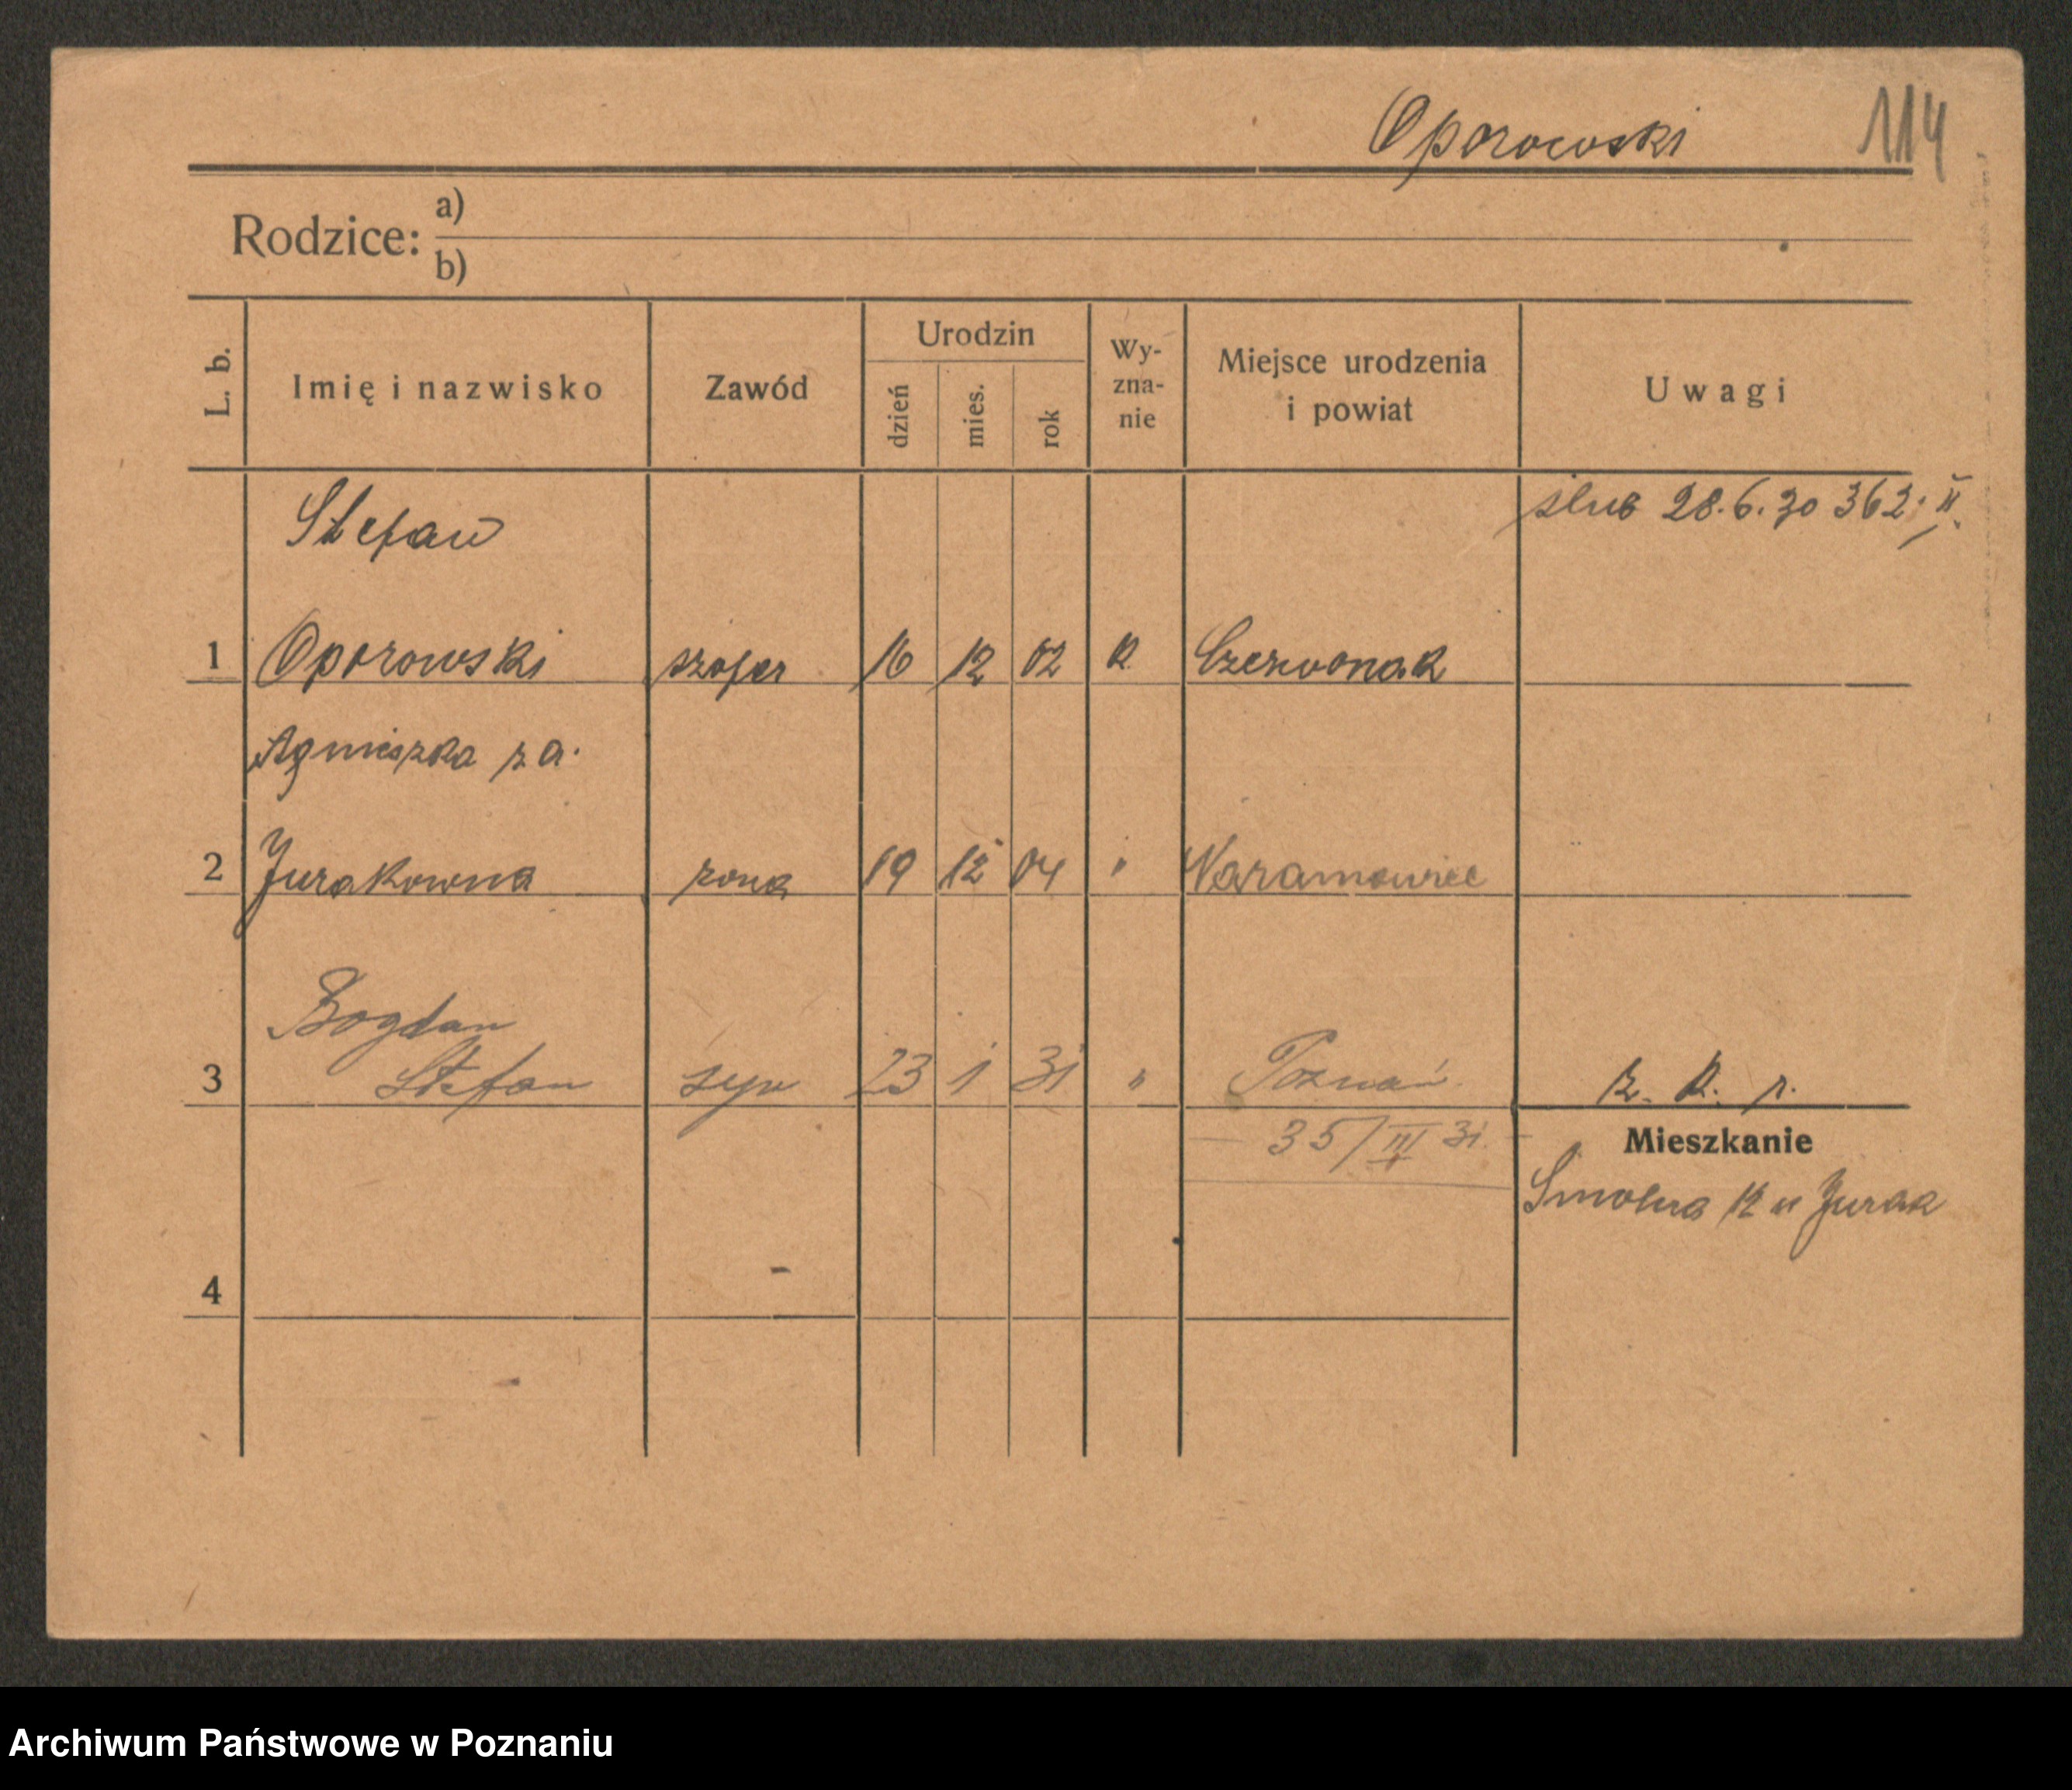 Oporowski 114
Rodzice: a)
b)
L. b. Imię i nazwisko Zawód Urodzin dzień mies. rok Wy-zna-nie Miejsce urodzenia i powiat Uwagi
Stefan ślub 28.6.30 362. II.
1 Oporowski szofer 16 12 02 k Czerwonak
Agnieszka z d.
2 Jurakowna żona 19 12 04 " Naramowice
Bogdan
3 Stefan syn 23 1 31 " Poznań
35/III 31.
Mieszkanie
Smolna 12 u Jurak
4
Archiwum Państwowe w Poznaniu